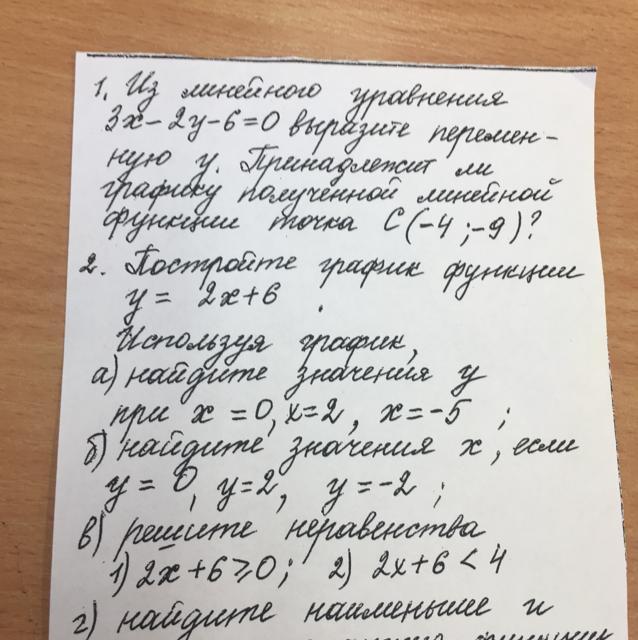 1. Из линейного уравнения
3x-2y-6=0 выразите перемен-
ную y. Принадлежит ли
графику полученной линейной
функции точка C(-4;-9)?
2. Постройте график функции
y = 2x+6 .
Используя график,
а) найдите значения y
при x = 0, x=2, x=-5 ;
б) найдите значения x, если
y = 0, y=2, y=-2 ;
в) решите неравенства
1) 2x+6⩾0; 2) 2x+6<4
г) найдите наименьше и